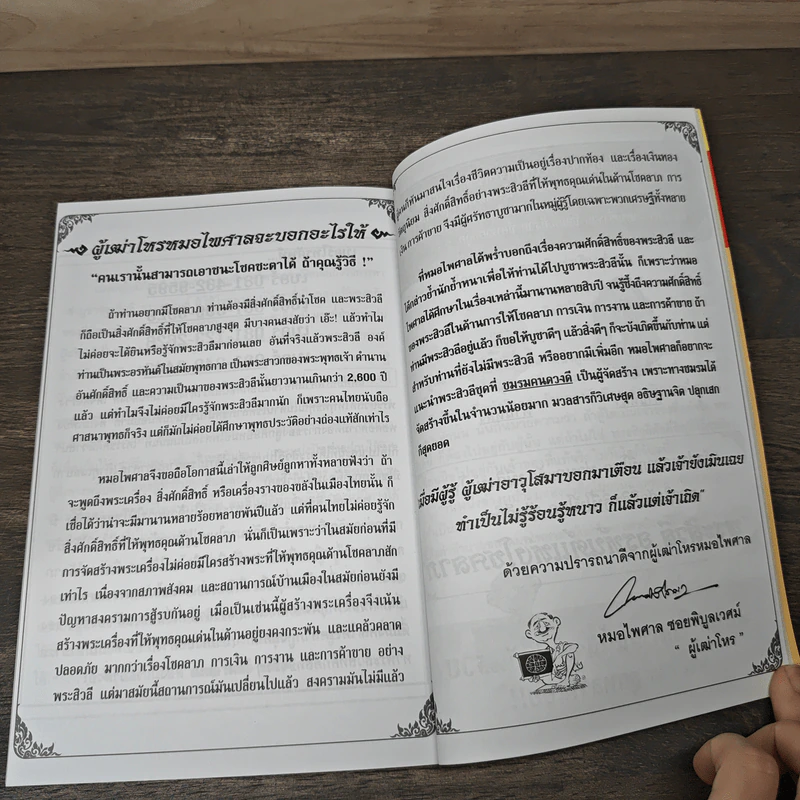 ผู้เฒ่าโหรหมอไพศาลจะบอกอะไรให้
"คนเรานั้นสามารถเอาชนะโชคชะตาได้ ถ้าคุณรู้วิธี !"
ถ้าท่านอยากมีโชคลาภ ท่านต้องมีสิ่งศักดิ์สิทธิ์นำโชค และพระสิวลี
ก็ถือเป็นสิ่งศักดิ์สิทธิ์ที่ให้โชคลาภสูงสุด มีบางคนสงสัยว่า เอ๊ะ! แล้วทำไม
ไม่ค่อยจะได้ยินหรือรู้จักพระสิวลีมาก่อนเลย อันที่จริงแล้วพระสิวลี องค์
ท่านเป็นพระอรหันต์ในสมัยพุทธกาล เป็นพระสาวกของพระพุทธเจ้า ตำนาน
อันศักดิ์สิทธิ์ และความเป็นมาของพระสิวลีนั้นยาวนานเกินกว่า 2,600 ปี
แล้ว แต่ทำไมจึงไม่ค่อยมีใครรู้จักพระสิวลีมากนัก ก็เพราะคนไทยนับถือ
ศาสนาพุทธก็จริง แต่ก็มักไม่ค่อยได้ศึกษาพุทธประวัติอย่างถ่องแท้สักเท่าไร
หมอไพศาลจึงขอถือโอกาสนี้เล่าให้ลูกศิษย์ลูกหาทั้งหลายฟังว่า ถ้า
จะพูดถึงพระเครื่อง สิ่งศักดิ์สิทธิ์ หรือเครื่องรางของขลังในเมืองไทยนั้น ก็
เชื่อได้ว่าน่าจะมีมานานหลายร้อยหลายพันปีแล้ว แต่ที่คนไทยไม่ค่อยรู้จัก
สิ่งศักดิ์สิทธิ์ที่ให้พุทธคุณด้านโชคลาภ นั่นก็เป็นเพราะว่าในสมัยก่อนที่มี
การจัดสร้างพระเครื่องไม่ค่อยมีใครสร้างพระที่ให้พุทธคุณด้านโชคลาภสัก
เท่าไร เนื่องจากสภาพสังคม และสถานการณ์บ้านเมืองในสมัยก่อนยังมี
ปัญหาสงครามการสู้รบกันอยู่ เมื่อเป็นเช่นนี้ผู้สร้างพระเครื่องจึงเน้น
สร้างพระเครื่องที่ให้พุทธคุณเด่นในด้านอยู่ยงคงกระพัน และแคล้วคลาด
ปลอดภัย มากกว่าเรื่องโชคลาภ การเงิน การงาน และการค้าขาย อย่าง
พระสิวลี แต่มาสมัยนี้สถานการณ์มันเปลี่ยนไปแล้ว สงครามมันไม่มีแล้ว
ผู้คนก็หันมาสนใจเรื่องชีวิตความเป็นอยู่เรื่องปากท้อง และเรื่องเงินทอง
สิ่งศักดิ์สิทธิ์อย่างพระสิวลีที่ให้พุทธคุณเด่นในด้านโชคลาภ การ
เงิน การค้าขาย จึงมีผู้ศรัทธาบูชามากในหมู่ผู้รู้โดยเฉพาะพวกเศรษฐีทั้งหลาย
ที่หมอไพศาลได้พร่ำบอกถึงเรื่องความศักดิ์สิทธิ์ของพระสิวลี และ
ได้กล่าวย้ำนักย้ำหนาเพื่อให้ท่านได้ไปบูชาพระสิวลีนั้น ก็เพราะว่าหมอ
ไพศาลได้ศึกษาในเรื่องเหล่านี้มานานหลายสิบปี จนรู้ซึ้งถึงความศักดิ์สิทธิ์
ของพระสิวลีในด้านการให้โชคลาภ การเงิน การงาน และการค้าขาย ถ้า
ท่านมีพระสิวลีอยู่แล้ว ก็ขอให้บูชาดีๆ แล้วสิ่งดีๆ ก็จะบังเกิดขึ้นกับท่าน แต่
สำหรับท่านที่ยังไม่มีพระสิวลี หรืออยากมีเพิ่มอีก หมอไพศาลก็อยากจะ
แนะนำพระสิวลีชุดที่ ชมรมคนดวงดี เป็นผู้จัดสร้าง เพราะทางชมรมได้
จัดสร้างขึ้นในจำนวนน้อยมาก มวลสารก็วิเศษสุด อธิษฐานจิต ปลุกเสก
ก็สุดยอด
เมื่อมีผู้รู้ ผู้เฒ่าอาวุโสมาบอกมาเตือน แล้วเจ้ายังเมินเฉย
ทำเป็นไม่รู้ร้อนรู้หนาว ก็แล้วแต่เจ้าเถิด"
ด้วยความปรารถนาดีจากผู้เฒ่าโหรหมอไพศาล
หมอไพศาล ซอยพิบูลเวศม์
" ผู้เฒ่าโหร "